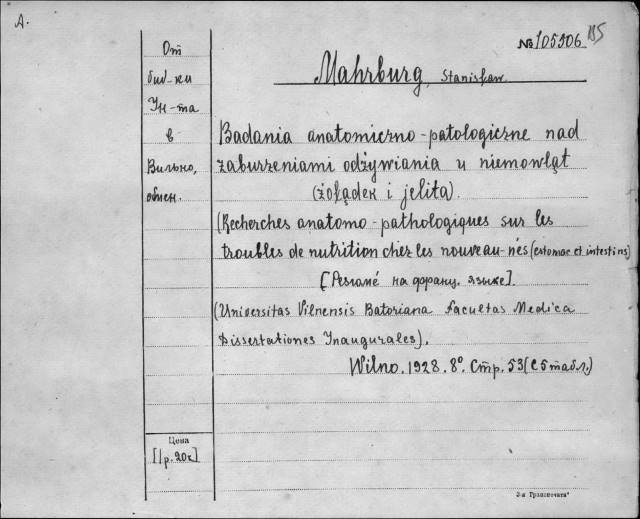 A.
№ 105906 185
Mahrburg, Stanisław.
От
биб-ки
Ун-та
в
Вильно,
обмен.
Badania anatomiczno-patologiczne nad
zaburzeniami odżywiania u niemowląt
(żołądek i jelita).
(Recherches anatomo-pathologiques sur les
troubles de nutrition chez les nouveau-nés (estomac et intestins)
[Резюмé на франц. языке].
(Universitas Vilnensis Batoriana Facultas Medica
Dissertationes Inaugurales).
Wilno. 1928. 8°. Стр. 53 (с 5 табл.)
Цена
[1 р. 20к]
3-я Гранпечать"